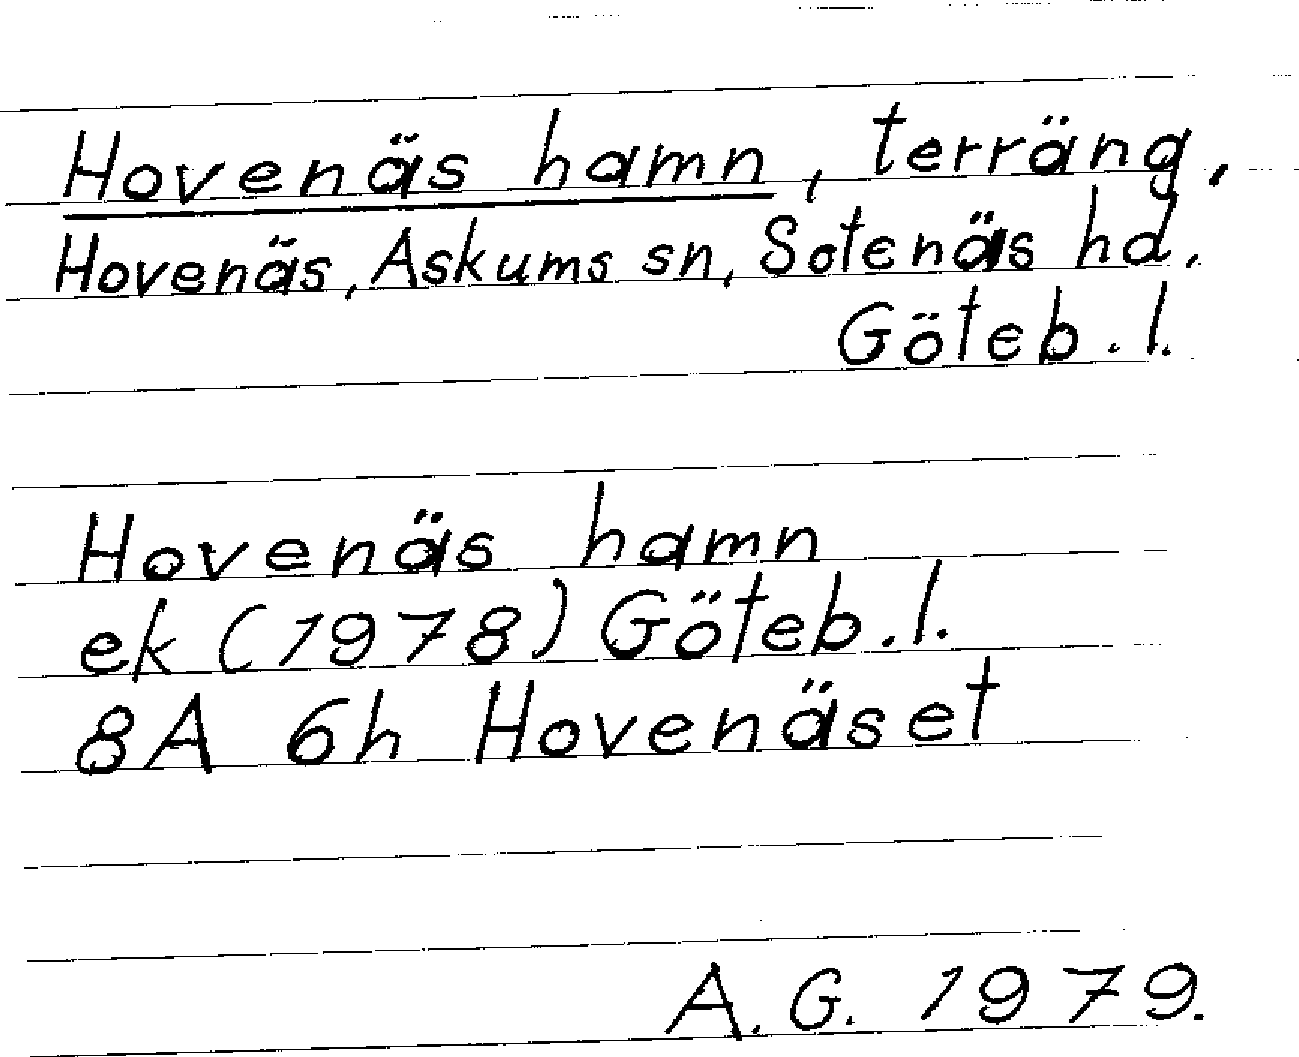 Hovenäs hamn, terräng,
Hovenäs, Askums sn, Sotenäs hd,
Göteb. l.
Hovenäs hamn
ek (1978) Göteb. l.
8A 6h Hovenäset
A. G. 1979.